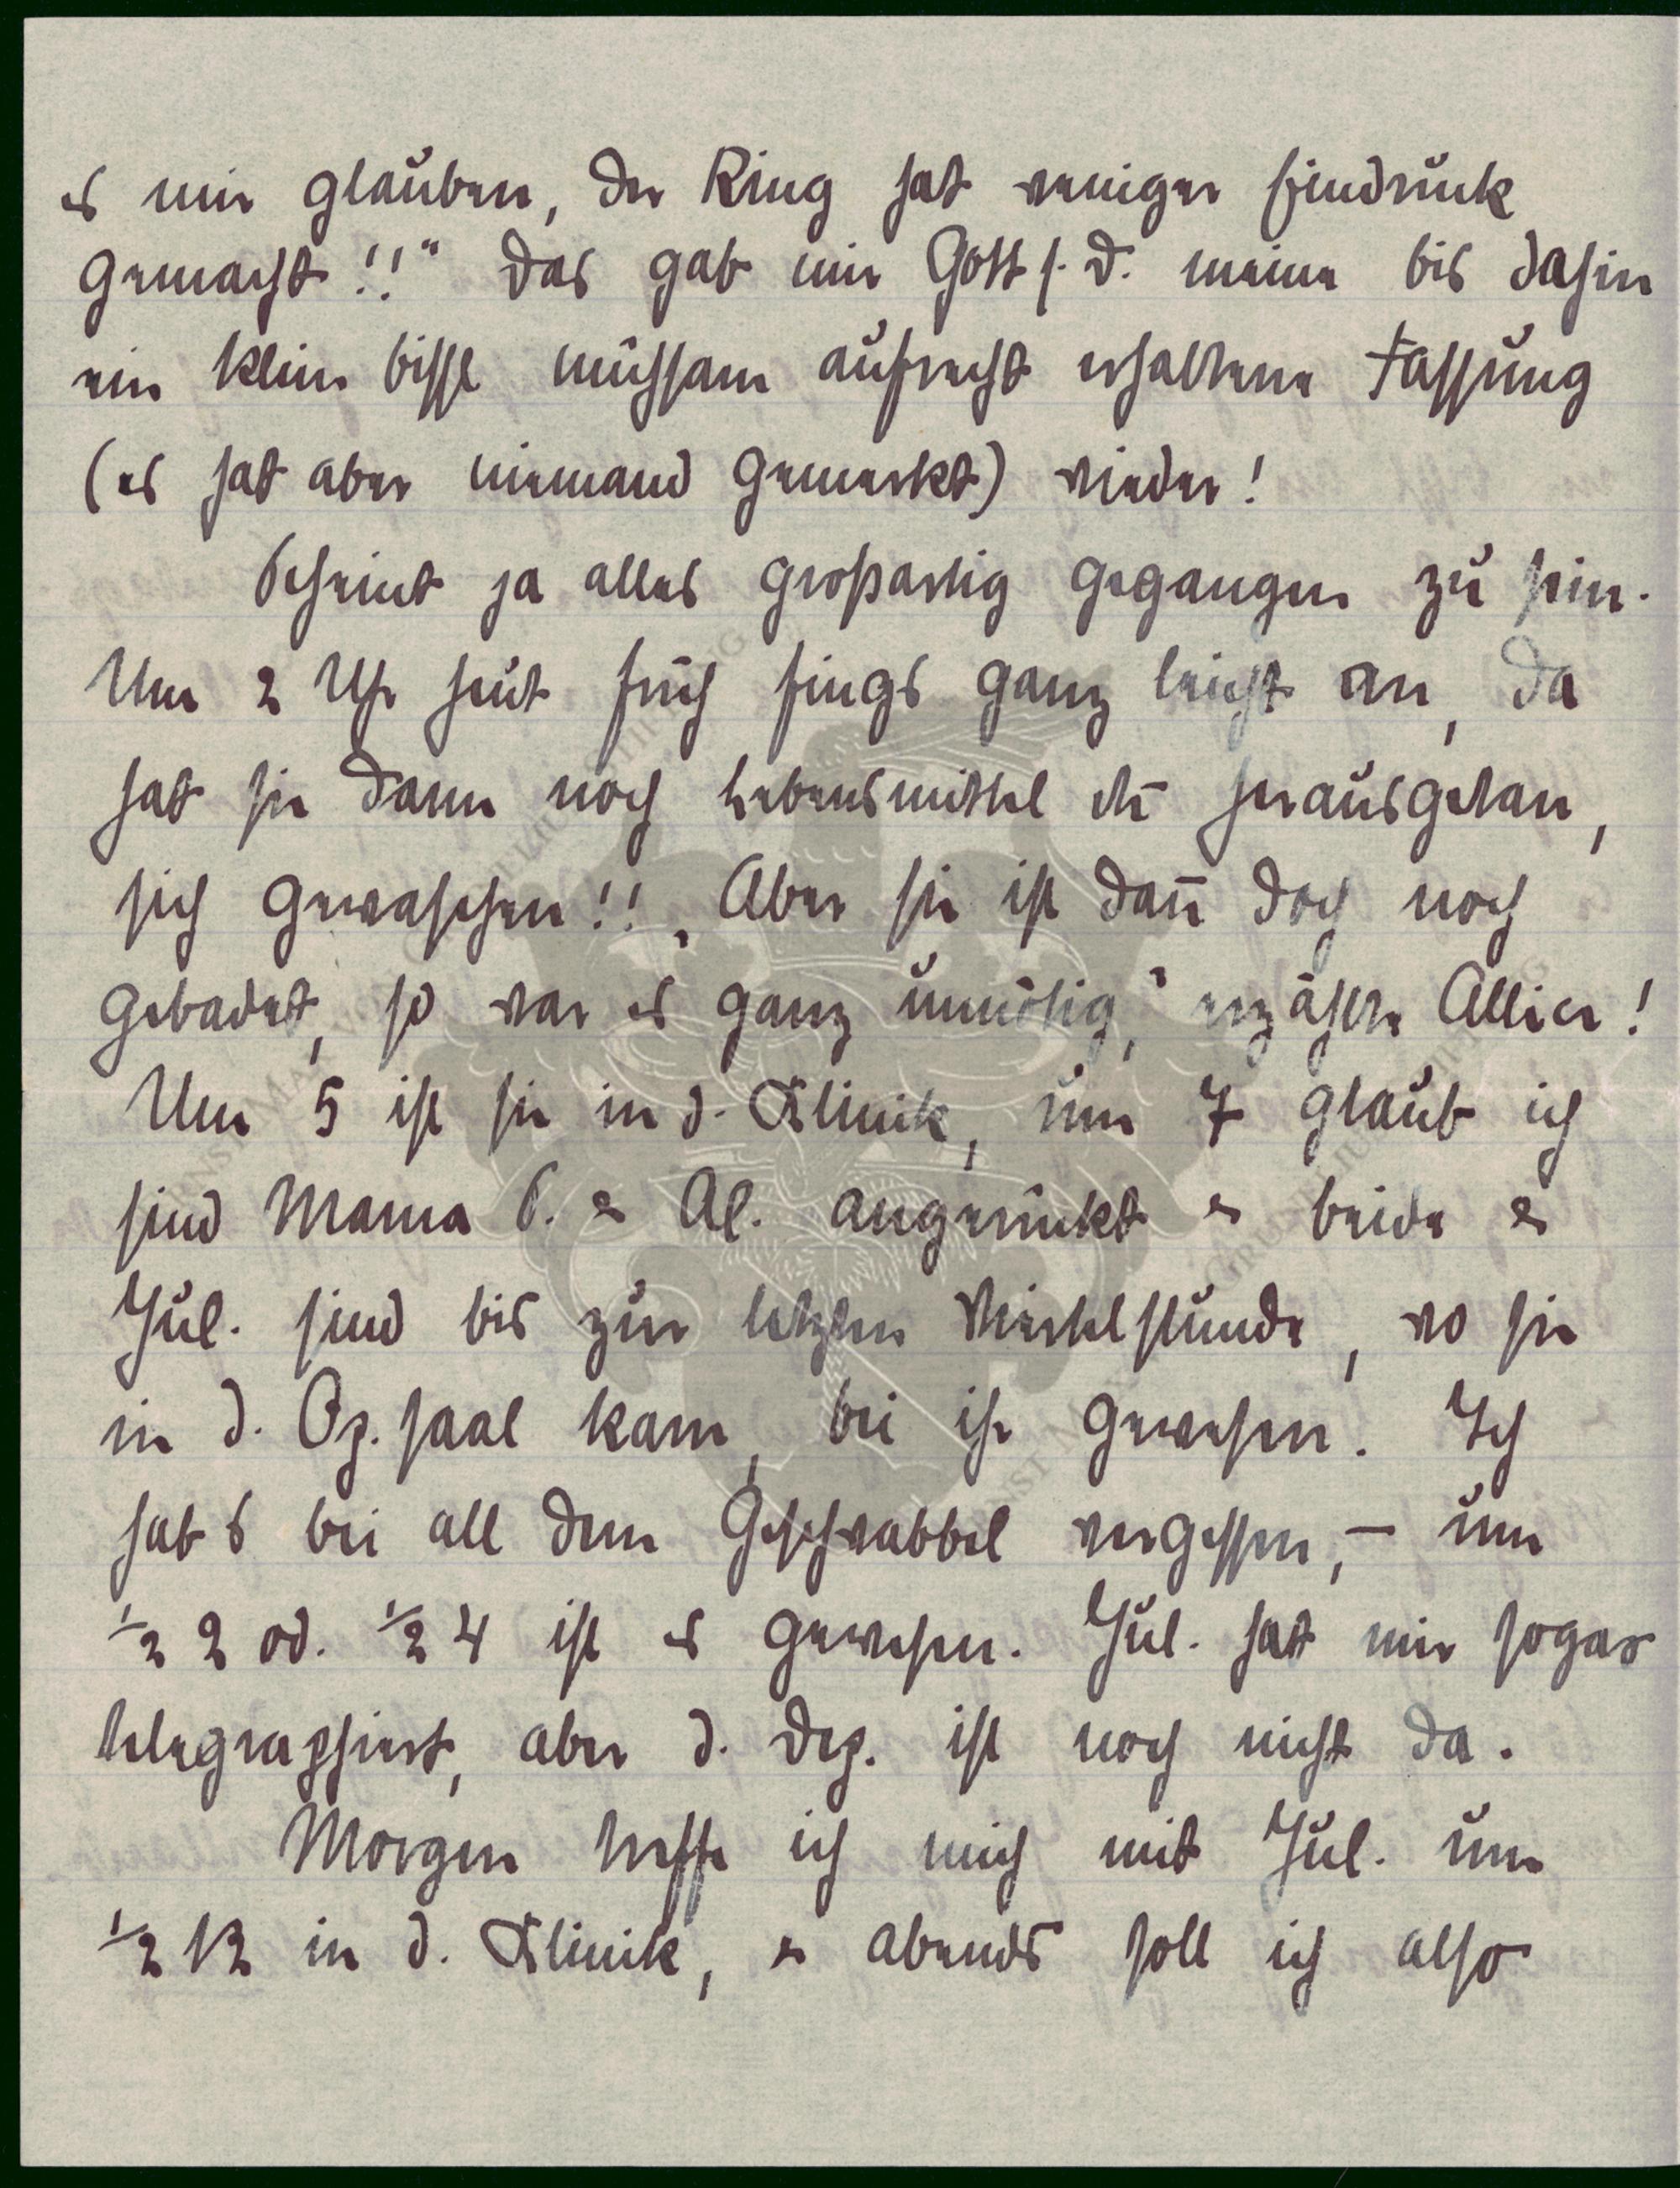 es mir glauben, der Ring hat weniger Eindruck
gemacht!!" Das gab mir Gott s. D. meine bis dahin
ein klein bissl mühsam aufrecht erhaltene Fassung
(es hat aber niemand gemerkt) wieder!
Scheint ja alles großartig gegangen zu sein.
Um 2 Uhr heut früh fings ganz leicht an, da
hat sie dann noch Lebensmittel etc herausgetan,
sich gewaschen!! „Aber sie ist dan̄ doch noch
gebadet, so war es ganz unnötig," erzählte Allice!
Um 5 ist sie in d. Klinik, um 7 glaub ich
sind Mama S. & Al. angerückt & beide &
Jul. sind bis zur letzten Viertelstunde, wo sie
in d. Op.saal kam, bei ihr gewesen. Ich
hab s bei all dem Geschwabbel vergessen, – um
½ 2 od. ½ 4 ist es gewesen. Jul. hat mir sogar
telegraphiert, aber d. Dep. ist noch nicht da.
Morgen treffe ich mich mit Jul. um
½ 12 in d. Klinik, & abends soll ich also